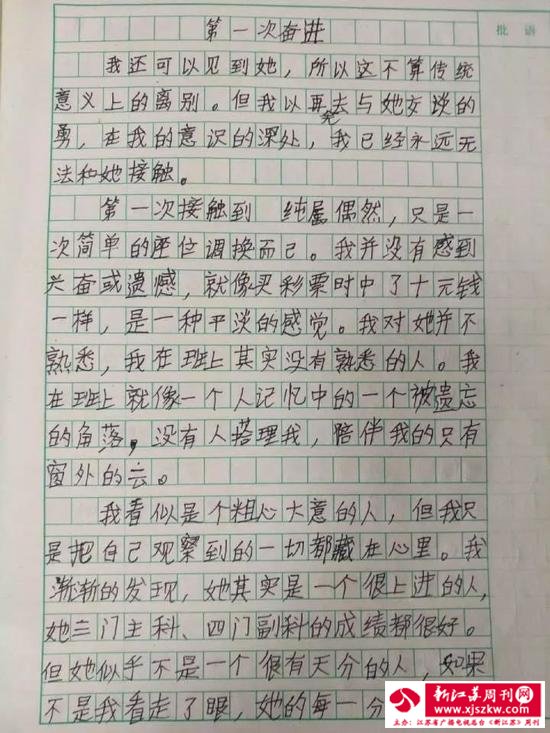 批 语
第一次奋进
我还可以见到她，所以这不算传统
意义上的离别。但我以再去与她交谈的
勇，在我的意识的深处，我已经永远无
法和她接触。
第一次接触到 纯属偶然，只是一
次简单的座位调换而已。我并没有感到
兴奋或遗憾，就像买彩票时中了十元钱
一样，是一种平淡的感觉。我对她并不
熟悉，我在班上其实没有熟悉的人。我
在班上就像一个人记忆中的一个被遗忘
的角落，没有人搭理我，陪伴我的只有
窗外的云。
我看似是个粗心大意的人，但我只
是把自己观察到的一切都藏在心里。我
渐渐的发现，她其实是一个很上进的人，
她三门主科、四门副科的成绩都很好。
但她似乎不是一个很有天分的人，如果
不是我看走了眼，她的每一分
新江苏周刊网
www.xjszkw.com
主办：江苏省广播电视总台《新江苏》周刊